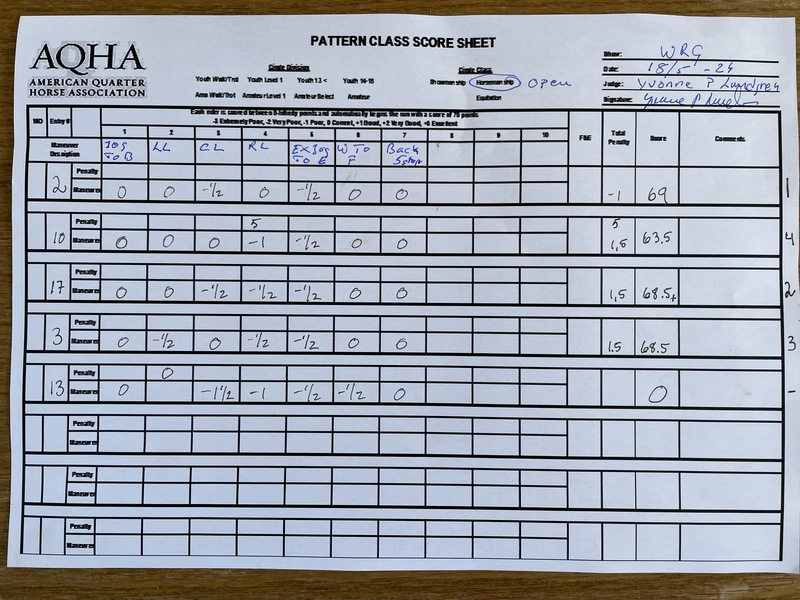 PATTERN CLASS SCORE SHEET
AQHA
AMERICAN QUARTER
HORSE ASSOCIATION
Circle Division
Youth Walk/Trot Youth Level 1 Youth 13 < Youth 14-18
Ama Walk/Trot Amateur Level 1 Amateur Select Amateur
Circle Class
Showmanship Horsemanship Open
Equitation
Show: WRG
Date: 18/5 -24
Judge: Yvonne P
Signature:
Each rider is scored between 0-infinity points and automatically begins the run with a score of 70 points
-3 Extremely Poor, -2 Very Poor, -1 Poor, 0 Correct, +1 Good, +2 Very Good, +3 Excellent
WO Entry # 1 2 3 4 5 6 7 8 9 10 F&E Total Penalty Score Comments
Maneuver Description Jog To B LL CL RL Ex Jog To E W To F Back 5 step
2 Penalty
Maneuver 0 0 -1/2 0 -1/2 0 0 -1 69 1
10 Penalty 5 5
Maneuver 0 0 0 -1 -1/2 0 0 1,5 63.5 4
17 Penalty
Maneuver 0 0 -1/2 -1/2 -1/2 0 0 1,5 68.5+ 2
3 Penalty
Maneuver 0 -1/2 0 -1/2 -1/2 0 0 1.5 68.5 3
13 Penalty 0
Maneuver 0 -1 1/2 -1 -1/2 -1/2 0 0 -
Penalty
Maneuver
Penalty
Maneuver
Penalty
Maneuver